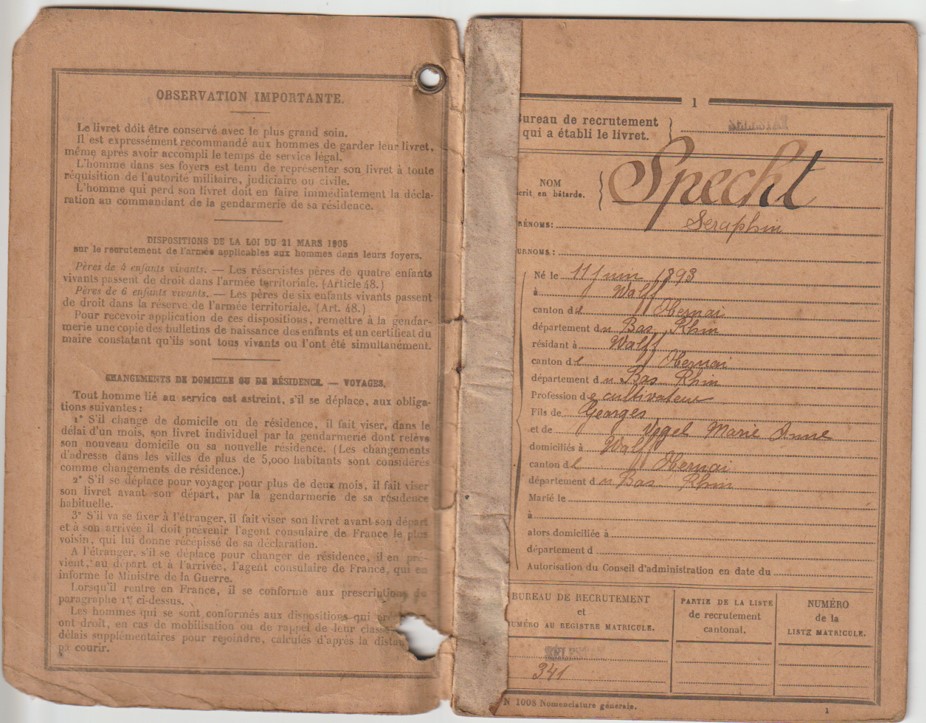 OBSERVATION IMPORTANTE.
Le livret doit être conservé avec le plus grand soin.
Il est expressément recommandé aux hommes de garder leur livret,
même après avoir accompli le temps de service légal.
L'homme dans ses foyers est tenu de représenter son livret à toute
réquisition de l'autorité militaire, judiciaire ou civile.
L'homme qui perd son livret doit en faire immédiatement la décla-
ration au commandant de la gendarmerie de sa résidence.
DISPOSITIONS DE LA LOI DU 21 MARS 1905
sur le recrutement de l'armée applicables aux hommes dans leurs foyers.
Pères de 4 enfants vivants. — Les réservistes pères de quatre enfants
vivants passent de droit dans l'armée territoriale. (Article 48.)
Pères de 6 enfants vivants. — Les pères de six enfants vivants passent
de droit dans la réserve de l'armée territoriale. (Art. 48.)
Pour recevoir application de ces dispositions, remettre à la gendar-
merie une copie des bulletins de naissance des enfants et un certificat du
maire constatant qu'ils sont tous vivants ou l'ont été simultanément.
CHANGEMENTS DE DOMICILE OU DE RÉSIDENCE. — VOYAGES.
Tout homme lié au service est astreint, s'il se déplace, aux obliga-
tions suivantes :
1° S'il change de domicile ou de résidence, il fait viser, dans le
délai d'un mois, son livret individuel par la gendarmerie dont relève
son nouveau domicile ou sa nouvelle résidence. (Les changements
d'adresse dans les villes de plus de 5,000 habitants sont considérés
comme changements de résidence.)
2° S'il se déplace pour voyager pour plus de deux mois, il fait viser
son livret avant son départ, par la gendarmerie de sa résidence
habituelle.
3° S'il va se fixer à l'étranger, il fait viser son livret avant son départ
et à son arrivée il doit prévenir l'agent consulaire de France le plus
voisin, qui lui donne récépissé de sa déclaration.
A l'étranger, s'il se déplace pour changer de résidence, il en pré-
vient, au départ et à l'arrivée, l'agent consulaire de France, qui en
informe le Ministre de la Guerre.
Lorsqu'il rentre en France, il se conforme aux prescriptions du
paragraphe 1er ci-dessus.
Les hommes qui se sont conformés aux dispositions qui
ont droit, en cas de mobilisation ou de rappel de leur classe
délais supplémentaires pour rejoindre, calculés d'après la
courir.
1
Bureau de recrutement
qui a établi le livret.
NOM
écrit en bâtarde.
Specht
PRÉNOMS: Seraphin
SURNOMS:
Né le 11 Juin 1893
à Walff
canton d'Obernai
département du Bas Rhin
résidant à Walff
canton d'Obernai
département du Bas Rhin
Profession de cultivateur
Fils de Georges
et de Vogel Marie Anne
domiciliés à Walff
canton d'Obernai
département du Bas Rhin
Marié le
à
alors domiciliée à
département d
Autorisation du Conseil d'administration en date du
BUREAU DE RECRUTEMENT
et
NUMÉRO AU REGISTRE MATRICULE.
PARTIE DE LA LISTE
de recrutement
cantonal.
NUMÉRO
de la
LISTE MATRICULE.
341
N° 1008 Nomenclature générale.
1